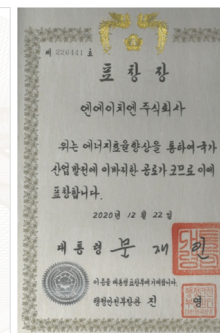 제 226441 호
표 창 장
엔에이치엔 주식회사
위는 에너지효율향상을 통하여 국가
산업발전에 이바지한 공로가 크므로 이에
표창합니다.
2020년 12월 22일
대통령 문 재 인
이 증을 대통령표창부에 기재합니다.
행정안전부장관 진 영